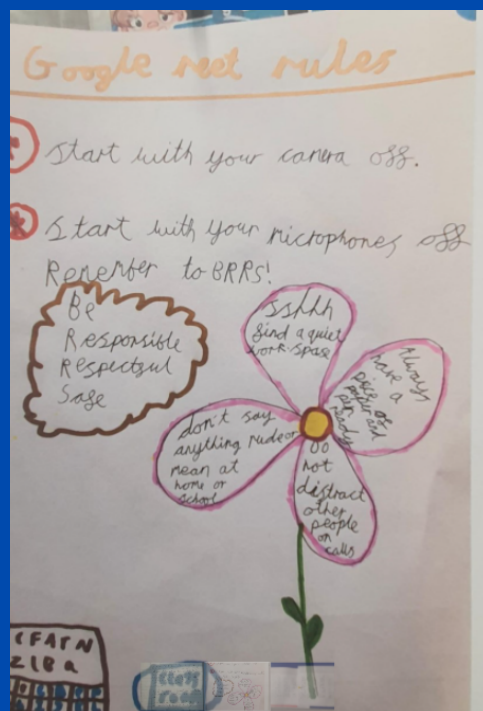 Google meet rules
Start with your camera off.
Start with your microphones off
Remember to BRRS!
Be
Responsible
Respectful
Safe
Sshhh
find a quiet
work spase
Always
have a
peice of
paper and
pen
ready
Do
not
distract
other
people
on
calls
don't say
anything rude or
mean at
home or
school
class
room